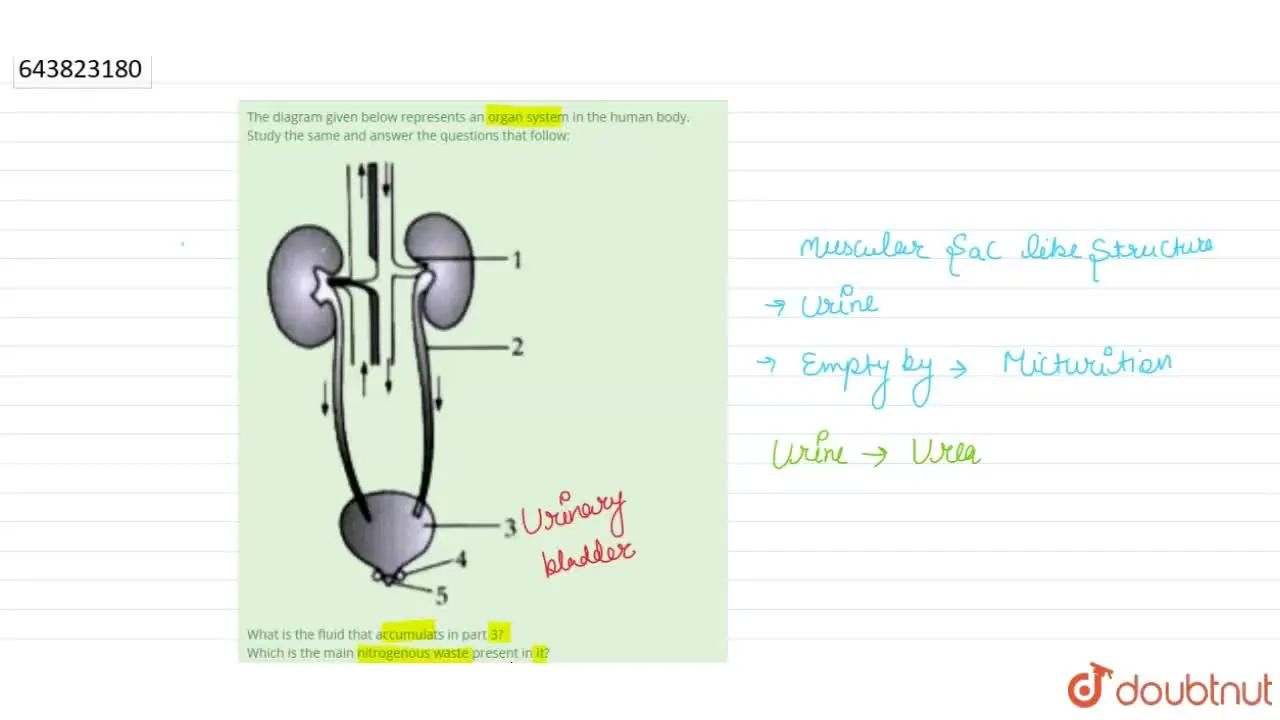 643823180
The diagram given below represents an organ system in the human body.
Study the same and answer the questions that follow:
1
2
3
4
5
Urinary
bladder
What is the fluid that accumulats in part 3?
Which is the main nitrogenous waste present in it?
Muscular Sac like Structure
→ Urine
→ Empty by → Micturition
Urine → Urea
doubtnut